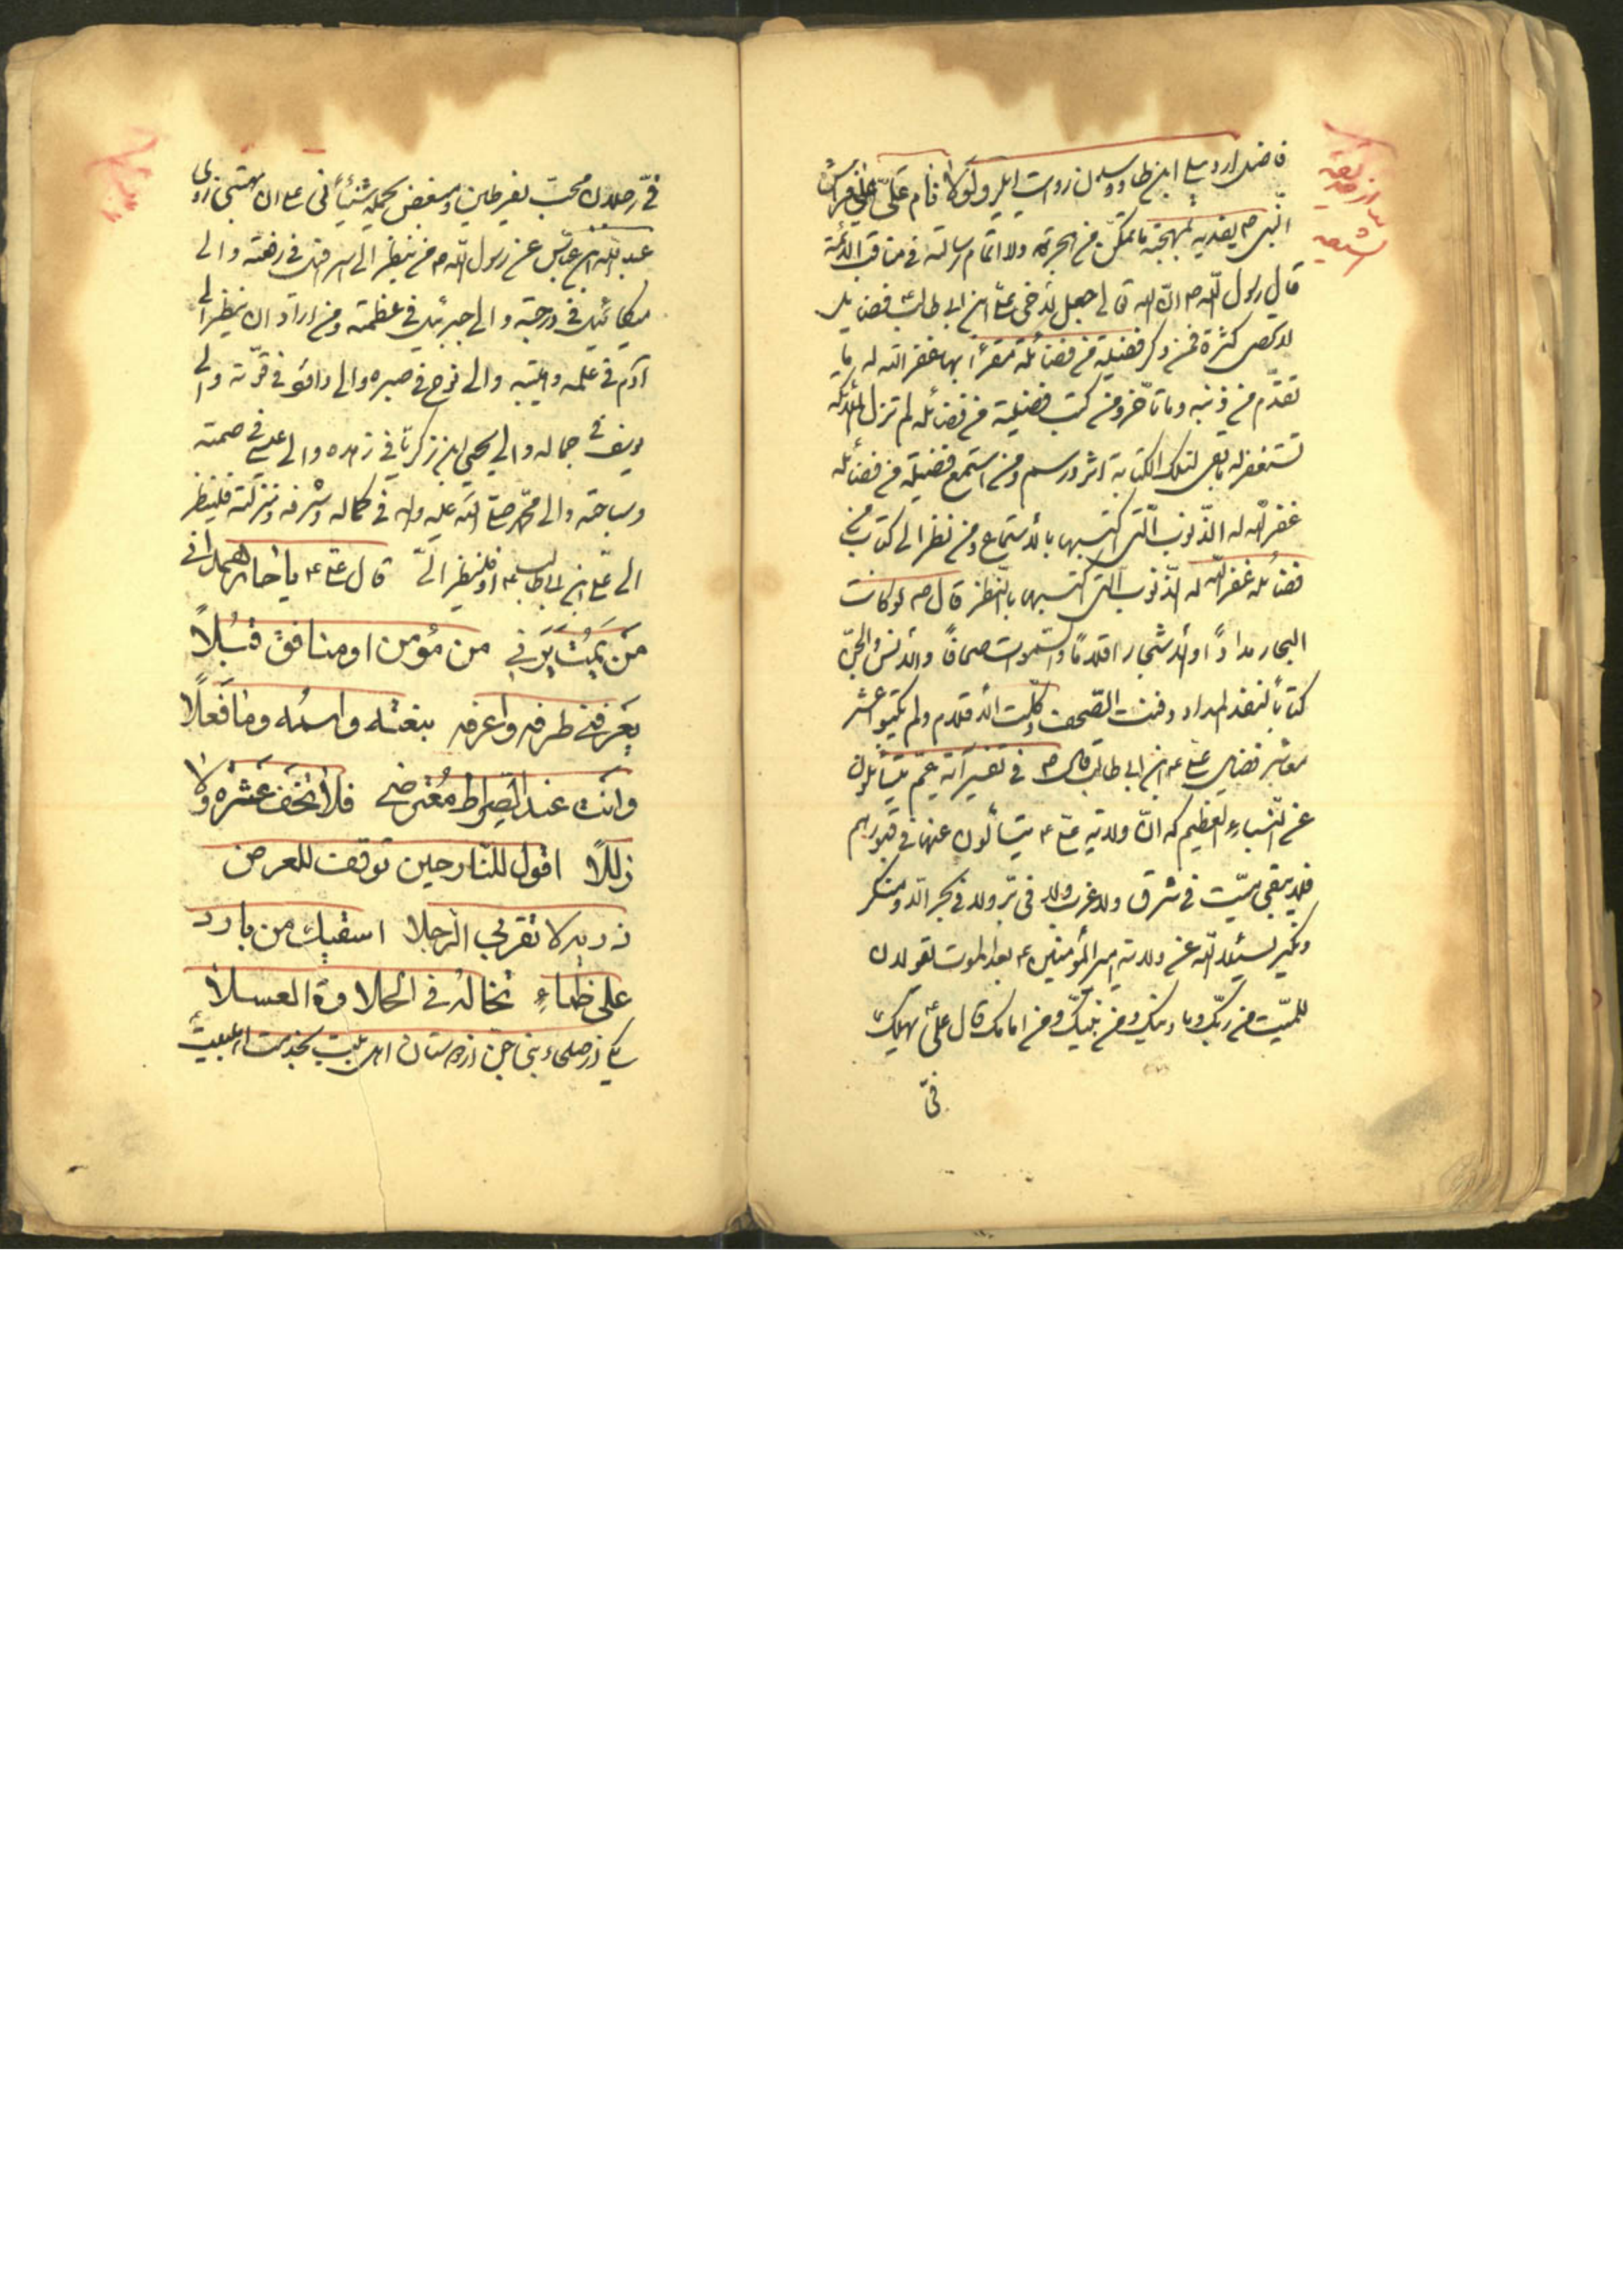 فاضل اردبیلی ابن طاووس ازن روایت ولولا نام علیّ علی فراش
النّبی ص یفدیه بمهجته ما تمکّن من هجرته ولا اتمام رسالته فی مناقب الائمة
قال رسول اللّه ص انّ اللّه تعالی جعل لأخی علیّ ابن ابی طالب ع فضایل
لا تحصی کثرة فمن ذکر فضیلة من فضائله مقرّاً بها غفر اللّه له ما
تقدّم من ذنبه وما تأخر ومن کتب فضیلة من فضائله لم تزل الملائکه
تستغفر له ما بقی لتلک الکتابة اثر ورسم ومن استمع فضیلة من فضائله
غفر اللّه له الذّنوب الّتی اکتسبها بالاستماع ومن نظر الی کتاب من
فضائله غفر اللّه له الذّنوب الّتی اکتسبها بالنّظر قال ص لو کانت
البحار مداداً والاشجار اقلاماً والسّموات صحافاً والانس والجنّ
کتاباً لنفد المداد وفنت الصّحف وکلّت الاقلام ولم یکتبوا عشر
معاشر فضایل علی ع ابن ابی طالب قال ص فی تفسیر آیه عمّ یتسائلون
عن النّباء العظیم که انّ ولایة علیّ ع یتسألون عنها فی قبورهم
فلا یبقی میّت فی شرق ولا غرب ولا فی برّ ولا فی بحر الّا ومنکر
ونکیر یسئلا اللّه عن ولایة امیر المؤمنین ع بعد الموت یقولان
للمیّت من ربّک وما دینک ومن نبیّک ومن امامک قال علیّ ع یهلک
فیّ
فیّ رجلان محبّ یفرطین ومبغض یحمله شنئانی علی ان یبهتنی روی
عبد اللّه ابن عبّاس عن رسول اللّه ص من ینظر الی اسرافیل فی رفعته والی
میکائیل فی درجته والی جبرئیل فی عظمته ومن اراد ان ینظر الی
آدم فی علمه وهیبته والی نوح فی صبره والی داود فی قوّته والی
یوسف فی جماله والی یحیی ابن زکریّا فی زهده والی عیسی فی صمته
وسیاحته والی محمّد صلی اللّه علیه وآله فی کماله وشرفه ومنزلته فلینظر
الی علیّ ابن ابی طالب ع او فلینظر الیّ قال علیّ ع یا حار همدانی
من یمت یرنی من مؤمن او منافق قبلاً
یعرفنی طرفه واعرفه بنعته واسمه وما فعلاً
وانت عند الصراط معترضی فلا تخف عثره ولا
زللاً اقول للنار حین توقف للعرض
ذریه لا تقربی الرجلا اسقیک من بارد
علی ظماءٍ تخاله فی الحلاوة العسلا
یکی از صلحاء بنی جنّ از دوستان اهل بیت بخدمت